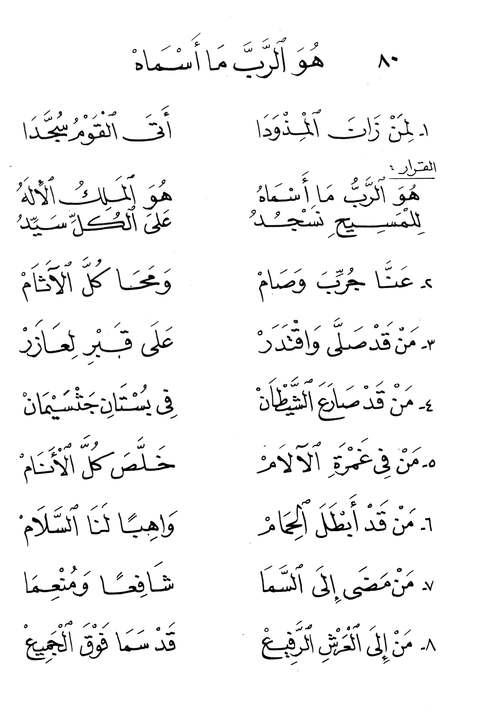 ٨٠ هُوَ ٱلرَّبَّ مَا أَسْمَاهْ
١ـ لِمَنْ زَانَ ٱلْمِذْوَدَا أَتَى ٱلْقَوْمُ سُجَّدَا
القرار :
هُوَ ٱلرَّبُّ مَا أَسْمَاهُ هُوَ ٱلْمَلِكُ ٱلْأِلَهُ
لِلْمَسِيحِ نَسْجُدُ عَلَى ٱلْكُلِّ سَيِّدُ
٢ـ عَنَّا جُرِّبَ وَصَامْ وَمَحَا كُلَّ ٱلْآثَامْ
٣ـ مَنْ قَدْ صَلَّى وَاقْتَدَرْ عَلَى قَبْرِ لِعَازَرْ
٤ـ مَنْ قَدْ صَارَعَ ٱلشَّيْطَانْ فِي بُسْتَانِ جَثْسَيْمَانْ
٥ـ مَنْ فِي غَمْرَةِ ٱلْآلَامْ خَلَّصَ كُلَّ ٱلْأَنَامْ
٦ـ مَنْ قَدْ أَبْطَلَ ٱلْحِمَامْ وَاهِبًا لَنَا ٱلسَّلَامْ
٧ـ مَنْ مَضَى إِلَى ٱلسَّمَا شَافِعًا وَمُنْعِمَا
٨ـ مَنْ إِلَى ٱلْعَرْشِ ٱلرَّفِيعْ قَدْ سَمَا فَوْقَ ٱلْجَمِيعْ